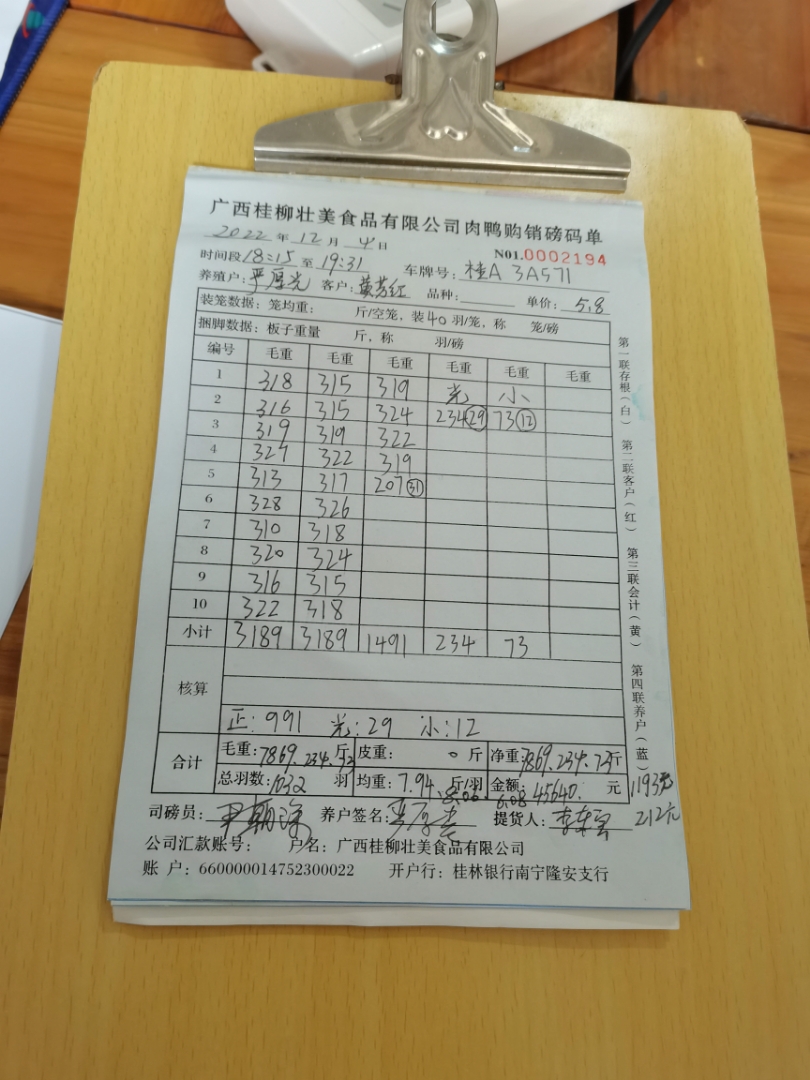 广西桂柳壮美食品有限公司肉鸭购销磅码单
2022 年 12 月 4 日
N01.0002194
时间段 18:15 至 19:31 车牌号: 桂A 3A571
养殖户: 严厚光 客户: 黄芳红 品种: 单价: 5.8
装笼数据: 笼均重: 斤/空笼, 装 40 羽/笼, 称 笼/磅
捆脚数据: 板子重量 斤, 称 羽/磅
编号 毛重 毛重 毛重 毛重 毛重 毛重
1 318 315 319 光 小
2 316 315 324 234 29 73 12
3 319 319 322
4 327 322 319
5 313 317 207 31
6 328 326
7 310 318
8 320 324
9 316 315
10 322 318
小计 3189 3189 1491 234 73
核算
正: 991 光: 29 小: 12
合计 毛重: 7869. 234. 73 斤 皮重: 0 斤 净重: 7869. 234. 73 斤
总羽数: 1032 羽 均重: 7.94. 8.06. 6.08 斤/羽 金额: 45640. 元 1193元
212元
司磅员: 养户签名: 提货人:
公司汇款账号: 户名: 广西桂柳壮美食品有限公司
账 户: 660000014752300022 开户行: 桂林银行南宁隆安支行
第一联存根(白) 第二联客户(红) 第三联会计(黄) 第四联养户(蓝)